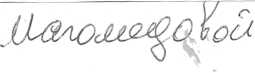 Магомедовой